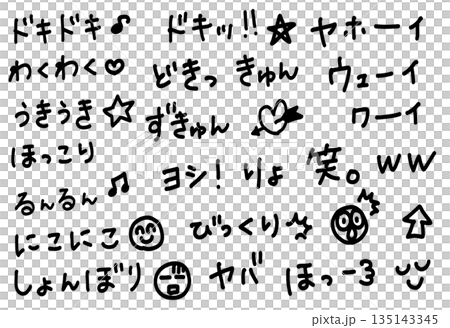 ドキドキ♪ ドキッ!!☆ ヤホーイ
わくわく♡ どきっ きゅん ウェーイ
うきうき☆ ずきゅん ワーイ
ほっこり ヨシ! りょ 笑。 ww
るんるん♫
にこにこ びっくり
しょんぼり ヤバ ほっ-3
PIXTA
135143345